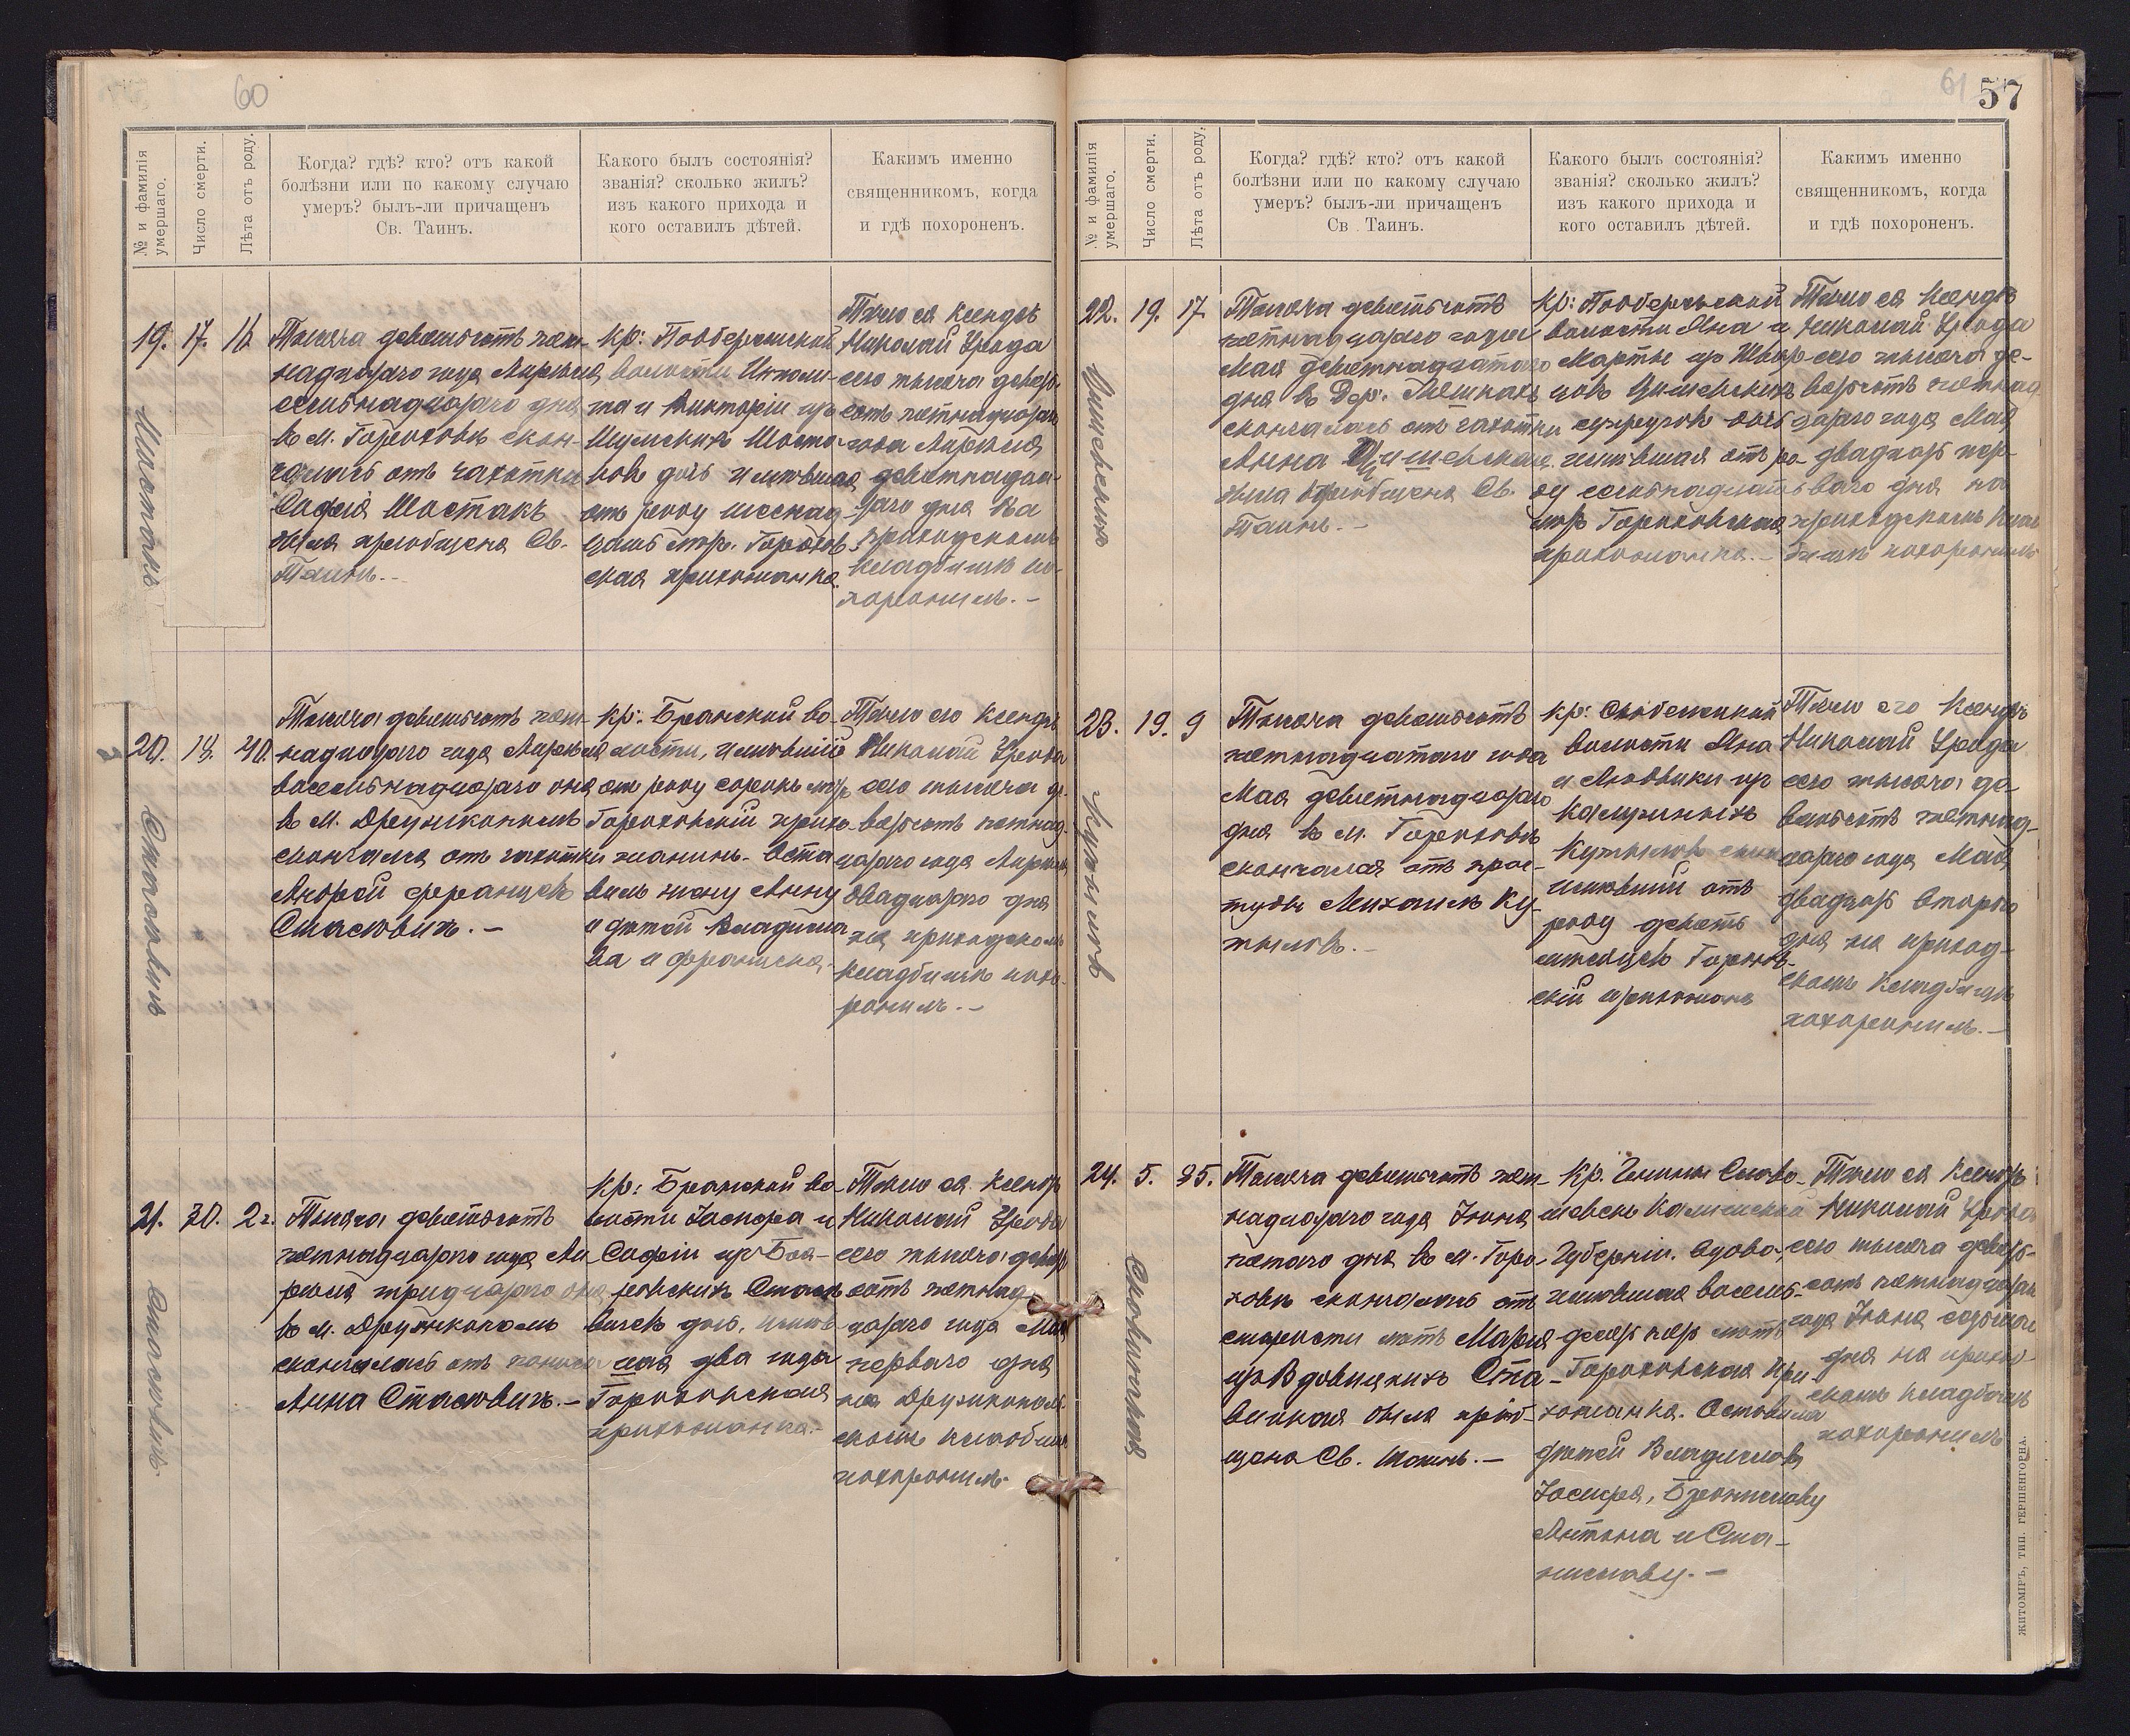 60
№ и фамилія
умершаго.
Число смерти.
Лѣта отъ роду.
Когда? гдѣ? кто? отъ какой
болѣзни или по какому случаю
умеръ? былъ-ли причащенъ
Св. Таинъ.
Какого былъ состоянія?
званія? сколько жилъ?
изъ какого прихода и
кого оставилъ дѣтей.
Каким​ъ именно
священникомъ, когда
и гдѣ похороненъ.
19.
17.
16
Тысяча девятьсотъ пят-
надцатаго года Апрѣля
семьнадцатаго дня
въ М. Гороховѣ скон-
чалась отъ чахотки
Софія Шостакъ
была пріобщена Св.
Таинъ.-
кр: Подберезской
волости Ипполи-
та и Викторіи изъ
Шоста-
ковъ дочь имѣвшая
отъ роду шеснад
цать лѣтъ. Горохов-
ская прихожанка.
Тѣло ея Ксендзъ
Николай Урода
сего тысяча девять-
сотъ пятнадцатаго
года Апрѣля
девятнадца-
таго дня На
приходскомъ
кладбищѣ по-
хоронилъ.-
20.
18.
40.
Стасювичъ
Тысяча девятьсотъ пят-
надцатаго года Апрѣля
восемьнадцатаго дня
въ М. Дружкополь
скончался отъ чахотки
Андрей Францевъ
Стасювичъ.-
кр: Бранской во-
лости, имѣвшій
отъ роду сорокъ лѣтъ
Гороховскій прихо-
жанинъ. Оста
вилъ жену Анну
и дѣтей Владисла
ва и Франциска.
Тѣло его Ксендзъ
Николай Урода
сего тысяча де-
вятьсотъ пятнад-
цатаго года Апрѣля
двадцатаго дня
на приходскомъ
кладбищѣ похо-
ронилъ.-
21.
30.
2 г.
Стасювичъ.
Тысяча девятьсотъ
пятнадцатаго года Ап
рѣля тридцатаго дня
въ М. Дружкополь
скончалась отъ
Анна Стасювичъ.-
кр: Бранской во-
лости Іосифа и
Софіи изъ
Стасю
вичей дочь,
два года
Гороховская
прихожанка.-
Тѣло ея Ксендзъ
Николай Урода
сего тысяча девять
сотъ пятнад-
цатаго года Мая
перваго дня
на Дружкополь
скомъ кладбищѣ
похоронилъ.
57
61
№ и фамилія
умершаго.
Число смерти.
Лѣта отъ роду.
Когда? гдѣ? кто? отъ какой
болѣзни или по какому случаю
умеръ? былъ-ли причащенъ
Св. Таинъ.
Какого былъ состоянія?
званія? сколько жилъ?
изъ какого прихода и
кого оставилъ дѣтей.
Какимъ именно
священникомъ, когда
и гдѣ похороненъ.
22.
19.
17
Тысяча девятьсотъ
пятнадцатаго года
Мая девятнадцатаго
дня въ Дер.
скончалась отъ чахотки
Анна
была пріобщена Св.
Таинъ.-
кр: Подберезской
волости Яна и
Марты изъ
супруговъ дочь
имѣвшая отъ ро-
ду семьнадцать
лѣтъ Гороховская
прихожанка.-
Тѣло ея Ксендзъ
Николай Урода
сего тысяча де-
вятьсотъ пятнад
цатаго года Мая
двадцать пер-
ваго дня на
приходскомъ клад
бищѣ похоронилъ
23.
19.
9
Кутыловъ
Тысяча девятьсотъ
пятнадцатаго года
Мая девятнадцатаго
дня въ М. Гороховѣ
скончался отъ прос-
туды Михаилъ Ку-
тыловъ.-
кр:
волости Яна
и Людвики изъ
Кутыловъ сынъ
имѣвшій отъ
роду девять
мѣсяцевъ Горохов-
скій прихожанъ
Тѣло его Ксендзъ
Николай Урода
сего тысяча де-
вятьсотъ пятнад-
цатаго года Мая
двадцать второго
дня на приход-
скомъ кладбищѣ
похоронилъ.-
24.
5.
85.
Тысяча девятьсотъ пят-
надцатаго года Іюня
пятаго дня въ М. Горо-
ховѣ скончалась отъ
старости лѣтъ Марія
была пріоб-
щена Св. Таинъ.-
кр. Гмины
Губерніи. Вдова,
имѣвшая восемь-
десятъ пять лѣтъ
Гороховская при-
хожанка. Оставила
дѣтей Владислава
Іосифа, Брониславу
Антона и Ста-
ниславу.-
Тѣло ея Ксендзъ
Николай Урода
сего тысяча девять-
сотъ пятнадцатаго
года Іюня седьмого
дня на приход-
скомъ кладбищѣ
похоронилъ
ЖИТОМІРЪ, ТИП. ГЕРШЕНГОРНА.